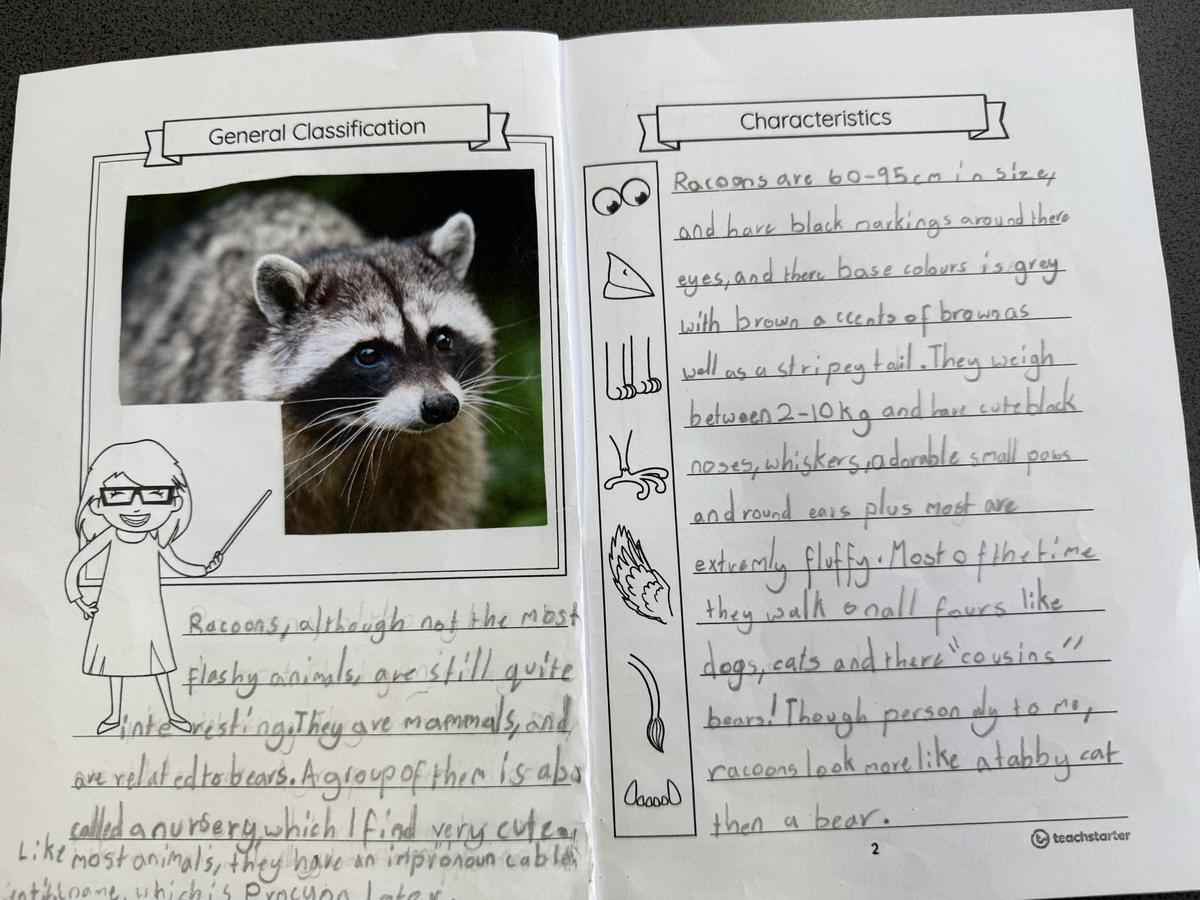 General Classification
Racoons, although not the most
flashy animals, are still quite
interesting. They are mammals, and
are related to bears. A group of them is also
called a nursery, which I find very cute.
Like most animals, they have an
name, which is Procyon Lotor.
Characteristics
Racoons are 60-95cm in size,
and have black markings around there
eyes, and there base colours is grey
with brown accents of brown as
well as a stripey tail. They weigh
between 2-10kg and have cute black
noses, whiskers, adorable small paws
and round ears plus most are
extremly fluffy. Most of the time
they walk on all fours like
dogs, cats and there "cousins"
bears! Though personaly to me,
racoons look more like a tabby cat
then a bear.
2
teachstarter